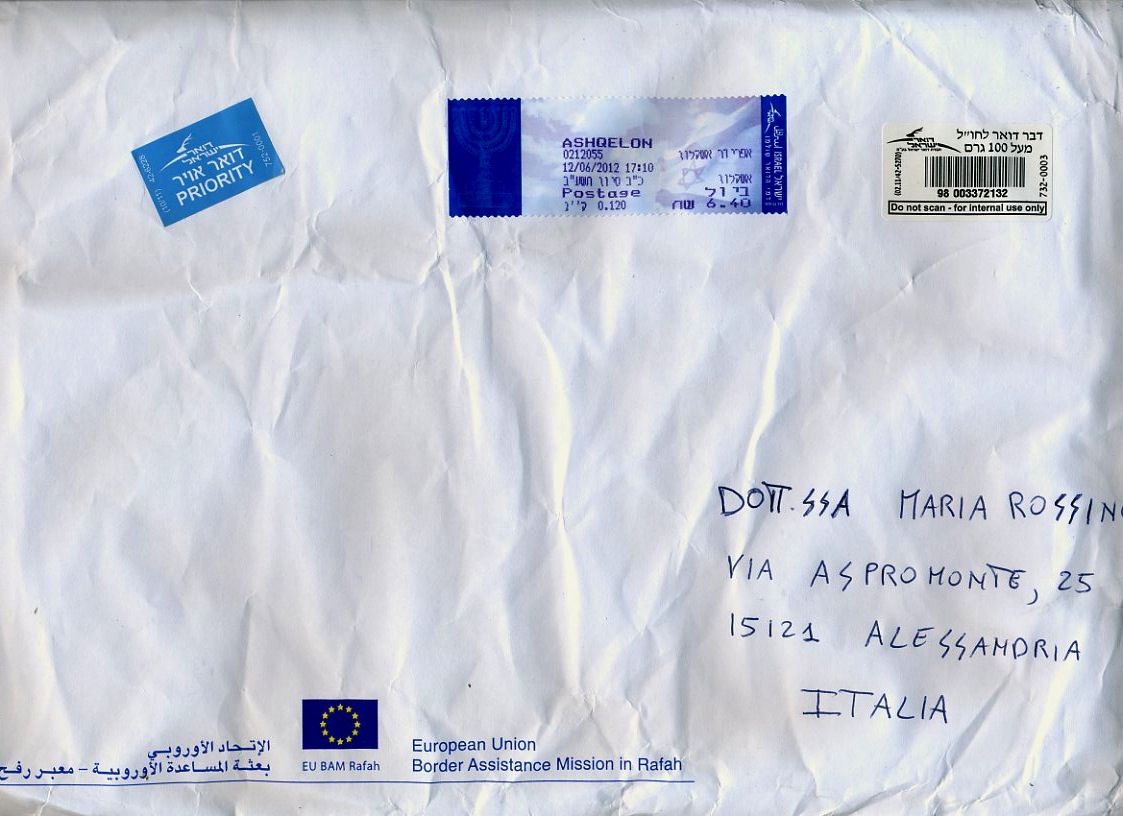 דואר
ישראל
דואר אויר
PRIORITY
(10/11) 42-6228
752-0001
ASHQELON
0212055
12/06/2012 17:10
כ"ב סיון תשע"ב
Postage
ק"ג 0.120
אשקלון
ביול
6.40 שח
ISRAEL
דבר דואר לחו"ל
מעל 100 גרם
דואר
ישראל
98 003372132
732-0003
Do not scan - for internal use only
DOTT.SSA MARIA ROSSIN
VIA ASPROMONTE, 25
15121 ALESSANDRIA
ITALIA
الإتـحـاد الأوروبـي
بعثـة المسـاعدة الأوروبيـة - معبـر رفـح
EU BAM Rafah
European Union
Border Assistance Mission in Rafah